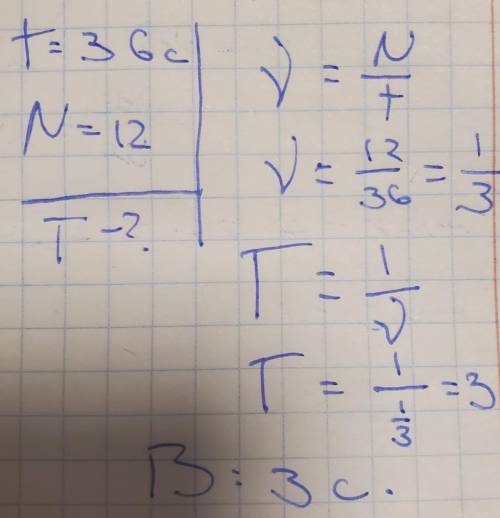 t = 36 с
N = 12
T - ?
ν = N/t
ν = 12/36 = 1/3
T = 1/ν
T = 1/(1/3) = 3
В: 3 с.